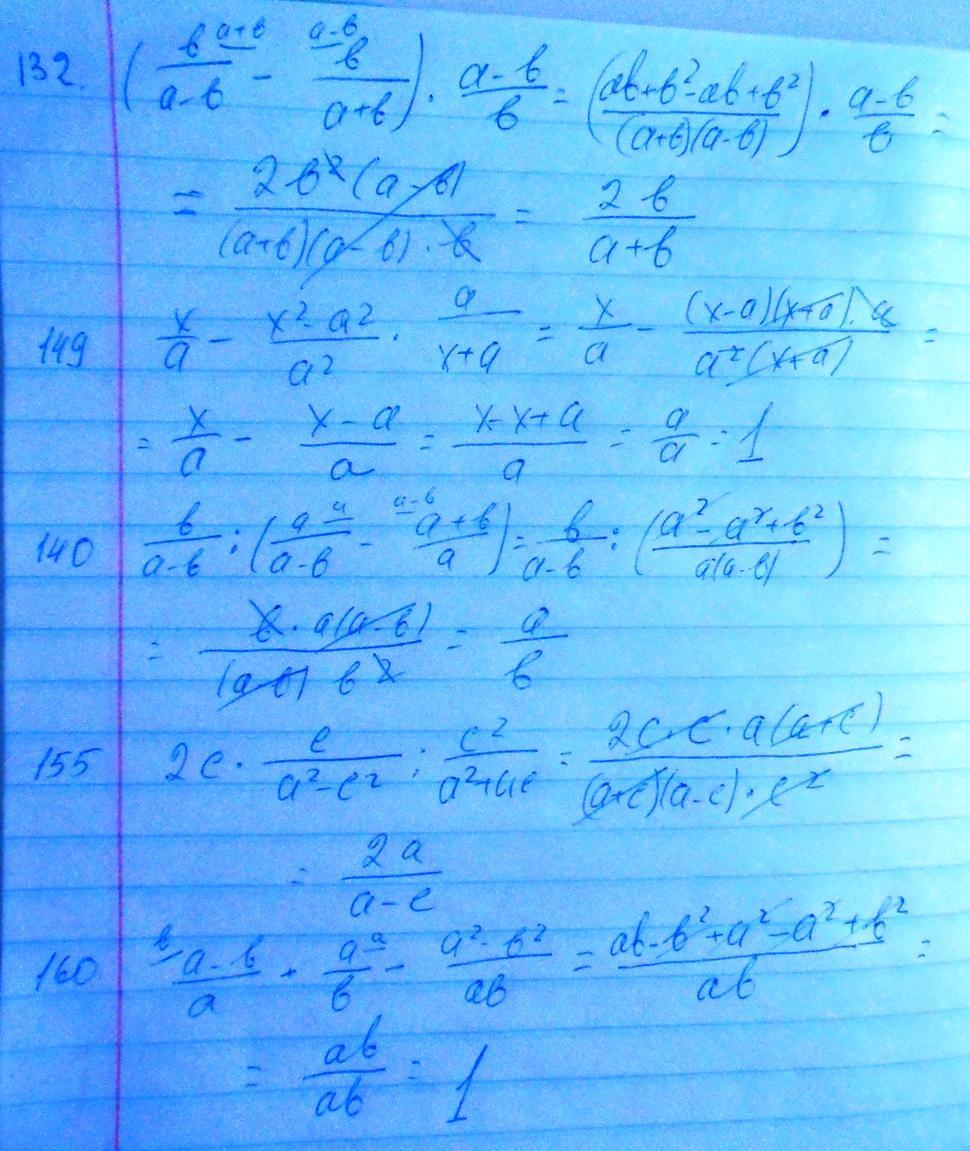 132. (b^{a+b}/(a-b) - ^{a-b}b/(a+b)) · (a-b)/b = ((ab+b²-ab+b²)/((a+b)(a-b))) · (a-b)/b =
= (2b²(a-b))/((a+b)(a-b)·b) = 2b/(a+b)
149 x/a - (x²-a²)/a² · a/(x+a) = x/a - ((x-a)(x+a)·a)/(a²(x+a)) =
= x/a - (x-a)/a = (x-x+a)/a = a/a = 1
140 b/(a-b) : (a^{a}/(a-b) - ^{a-b}(a+b)/a) = b/(a-b) : ((a²-a²+b²)/(a(a-b))) =
= (b·a(a-b))/((a-b) b²) = a/b
155 2c · c/(a²-c²) : c²/(a²+ac) = (2c·c·a(a+c))/((a+c)(a-c)·c²) =
= 2a/(a-c)
160 ^{b}(a-b)/a + a^{a}/b - (a²-b²)/ab = (ab-b²+a²-a²+b²)/ab =
= ab/ab = 1